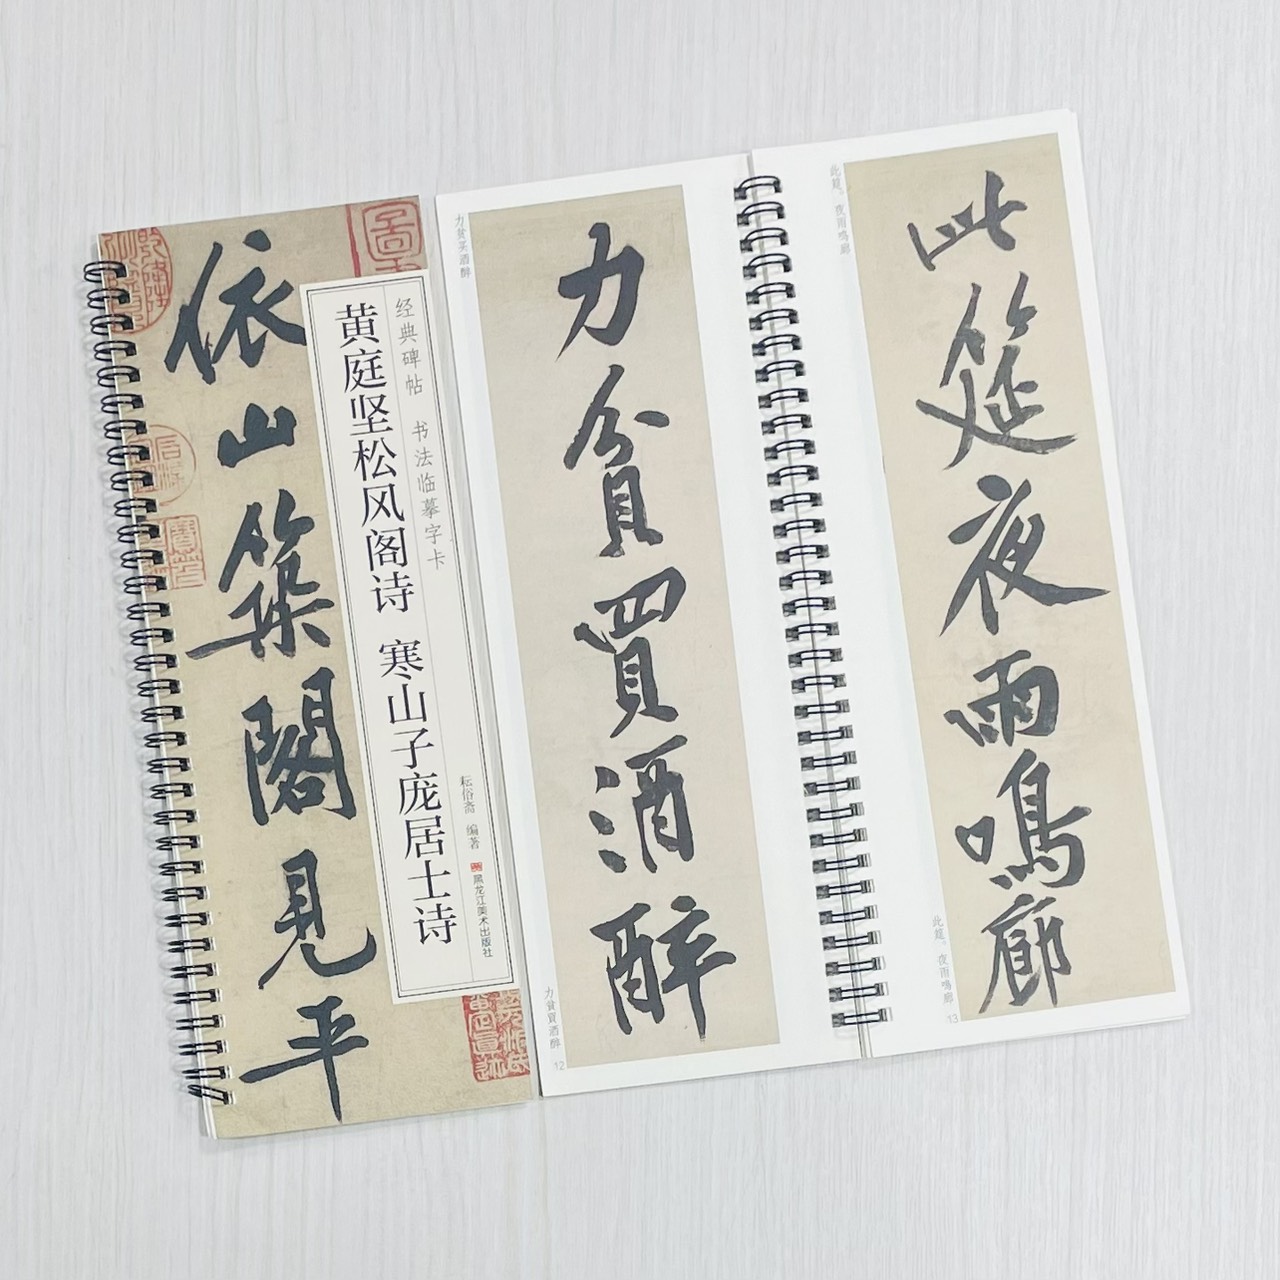 依山築閣見平
经典碑帖 书法临摹字卡
黄庭坚松风阁诗 寒山子庞居士诗
耘俗斋 编著
黑龙江美术出版社
力贫买酒醉
力貧買酒醉
力貧買酒醉
12
此筵。夜雨鸣廊
此筵夜雨鳴廊
此筵。夜雨鳴廊
13